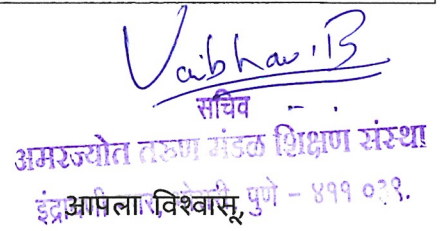 Vaibhav.B
सचिव
अमरज्योत तरुण मंडळ शिक्षण संस्था
पुणे - ४११ ०३९.
आपला विश्वासू,